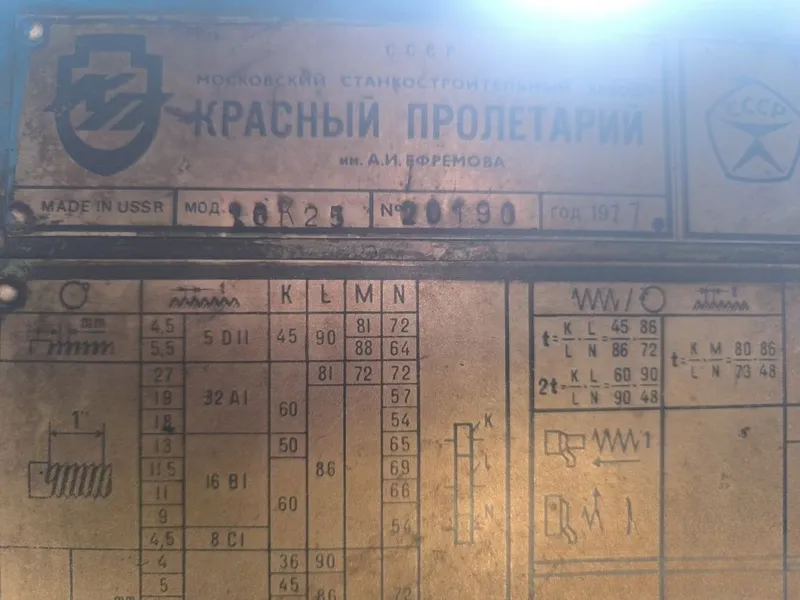 СССР
МОСКОВСКИЙ СТАНКОСТРОИТЕЛЬНЫЙ ЗАВОД
КРАСНЫЙ ПРОЛЕТАРИЙ
им. А.И. ЕФРЕМОВА
СССР
MADE IN USSR МОД. 16К25 № 20190 ГОД 1977
t K L M N
mm 4,5 5 D II 45 90 81 72
5,5 88 64
27 32 A I 60 81 72 72
19 57
18 54
1"
13 50 65
11,5 16 B I 60 86 69
11 66
9 54
4,5 8 C I
4 36 90
5 45 86 72
mm
K
L
N
t
t= K/L · L/N = 45/86 · 86/72
2t= K/L · L/N = 60/90 · 90/48
t= K/L · M/N = 80/73 · 86/48